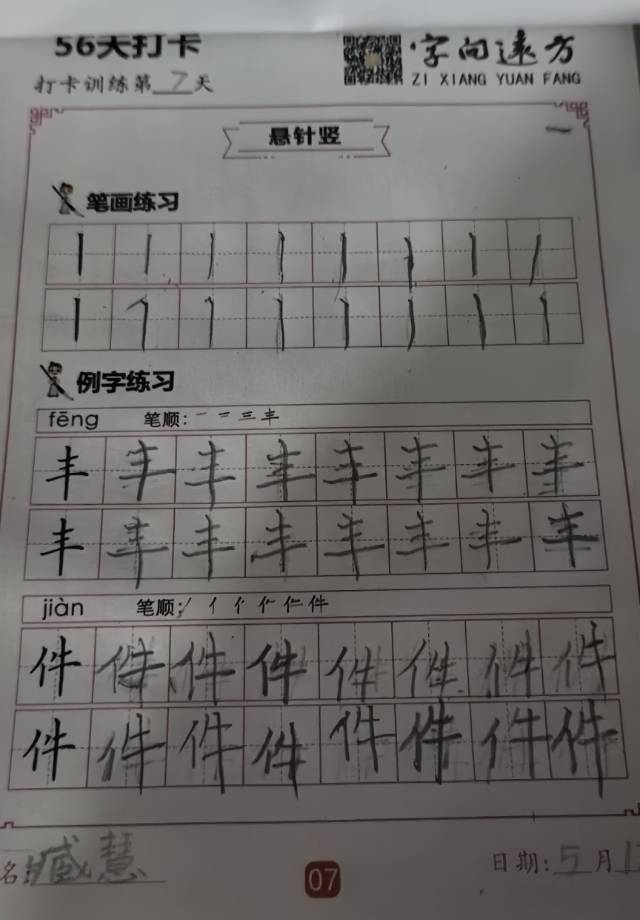 56天打卡
字向远方
ZI XIANG YUAN FANG
打卡训练第7天
悬针竖
笔画练习
例字练习
fēng 笔顺: 一 二 三 丰
丰 丰 丰 丰 丰 丰 丰 丰
丰 丰 丰 丰 丰 丰 丰 丰
jiàn 笔顺: 丿 亻 亻 仁 件
件 件 件 件 件 件 件 件
件 件 件 件 件 件 件 件
名: 臧慧
日期: 5月1
07